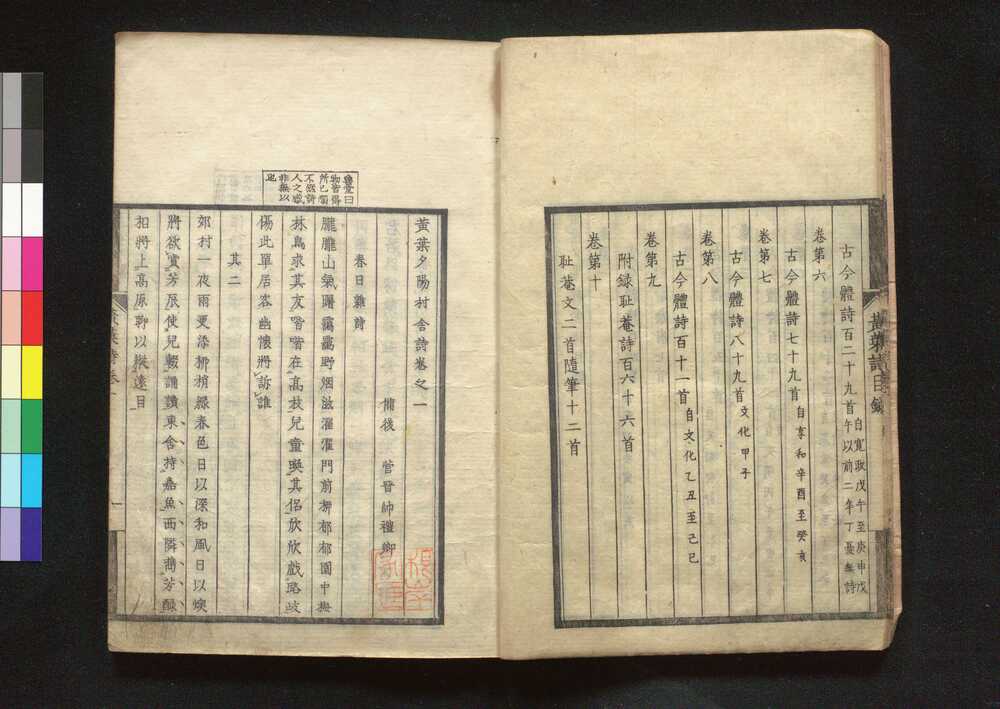 黃葉詩目錄
古今體詩百二十九首自寬政戊午至庚申戊
午以前二年丁憂無詩
卷第六
古今體詩七十九首自享和辛酉至癸亥
卷第七
古今體詩八十九首文化甲子
卷第八
古今體詩百十一首自文化乙丑至己巳
卷第九
附録耻菴詩百六十六首
卷第十
耻菴文二首隨筆十二首
黃葉夕陽村舍詩卷之一
備後 菅晉帥禮卿
春日雜詩
朧朧山氣曙靄靄野烟滋濯濯門前柳郁郁園中
林鳥求其友嚶嚶在高枝兒童喚其侶欣欣戲路歧
傷此單居客幽懷將訴誰
其二
郊村一夜雨更添柳梢綠春色日以深和風日以燠
將欲賞芳辰使兒輟誦讀東舍持嘉魚西隣蕕芳醁
相將上高原聊以縱遠目